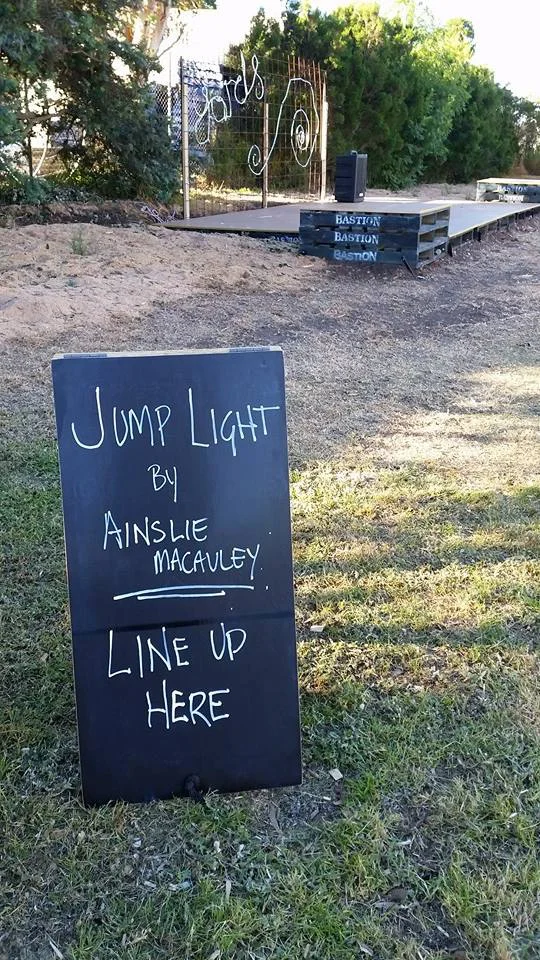 yards
BASTION
BASTION
BASTION
BASTION
BASTION
JUMP LIGHT
BY
AINSLIE
MACAULEY
LINE UP
HERE